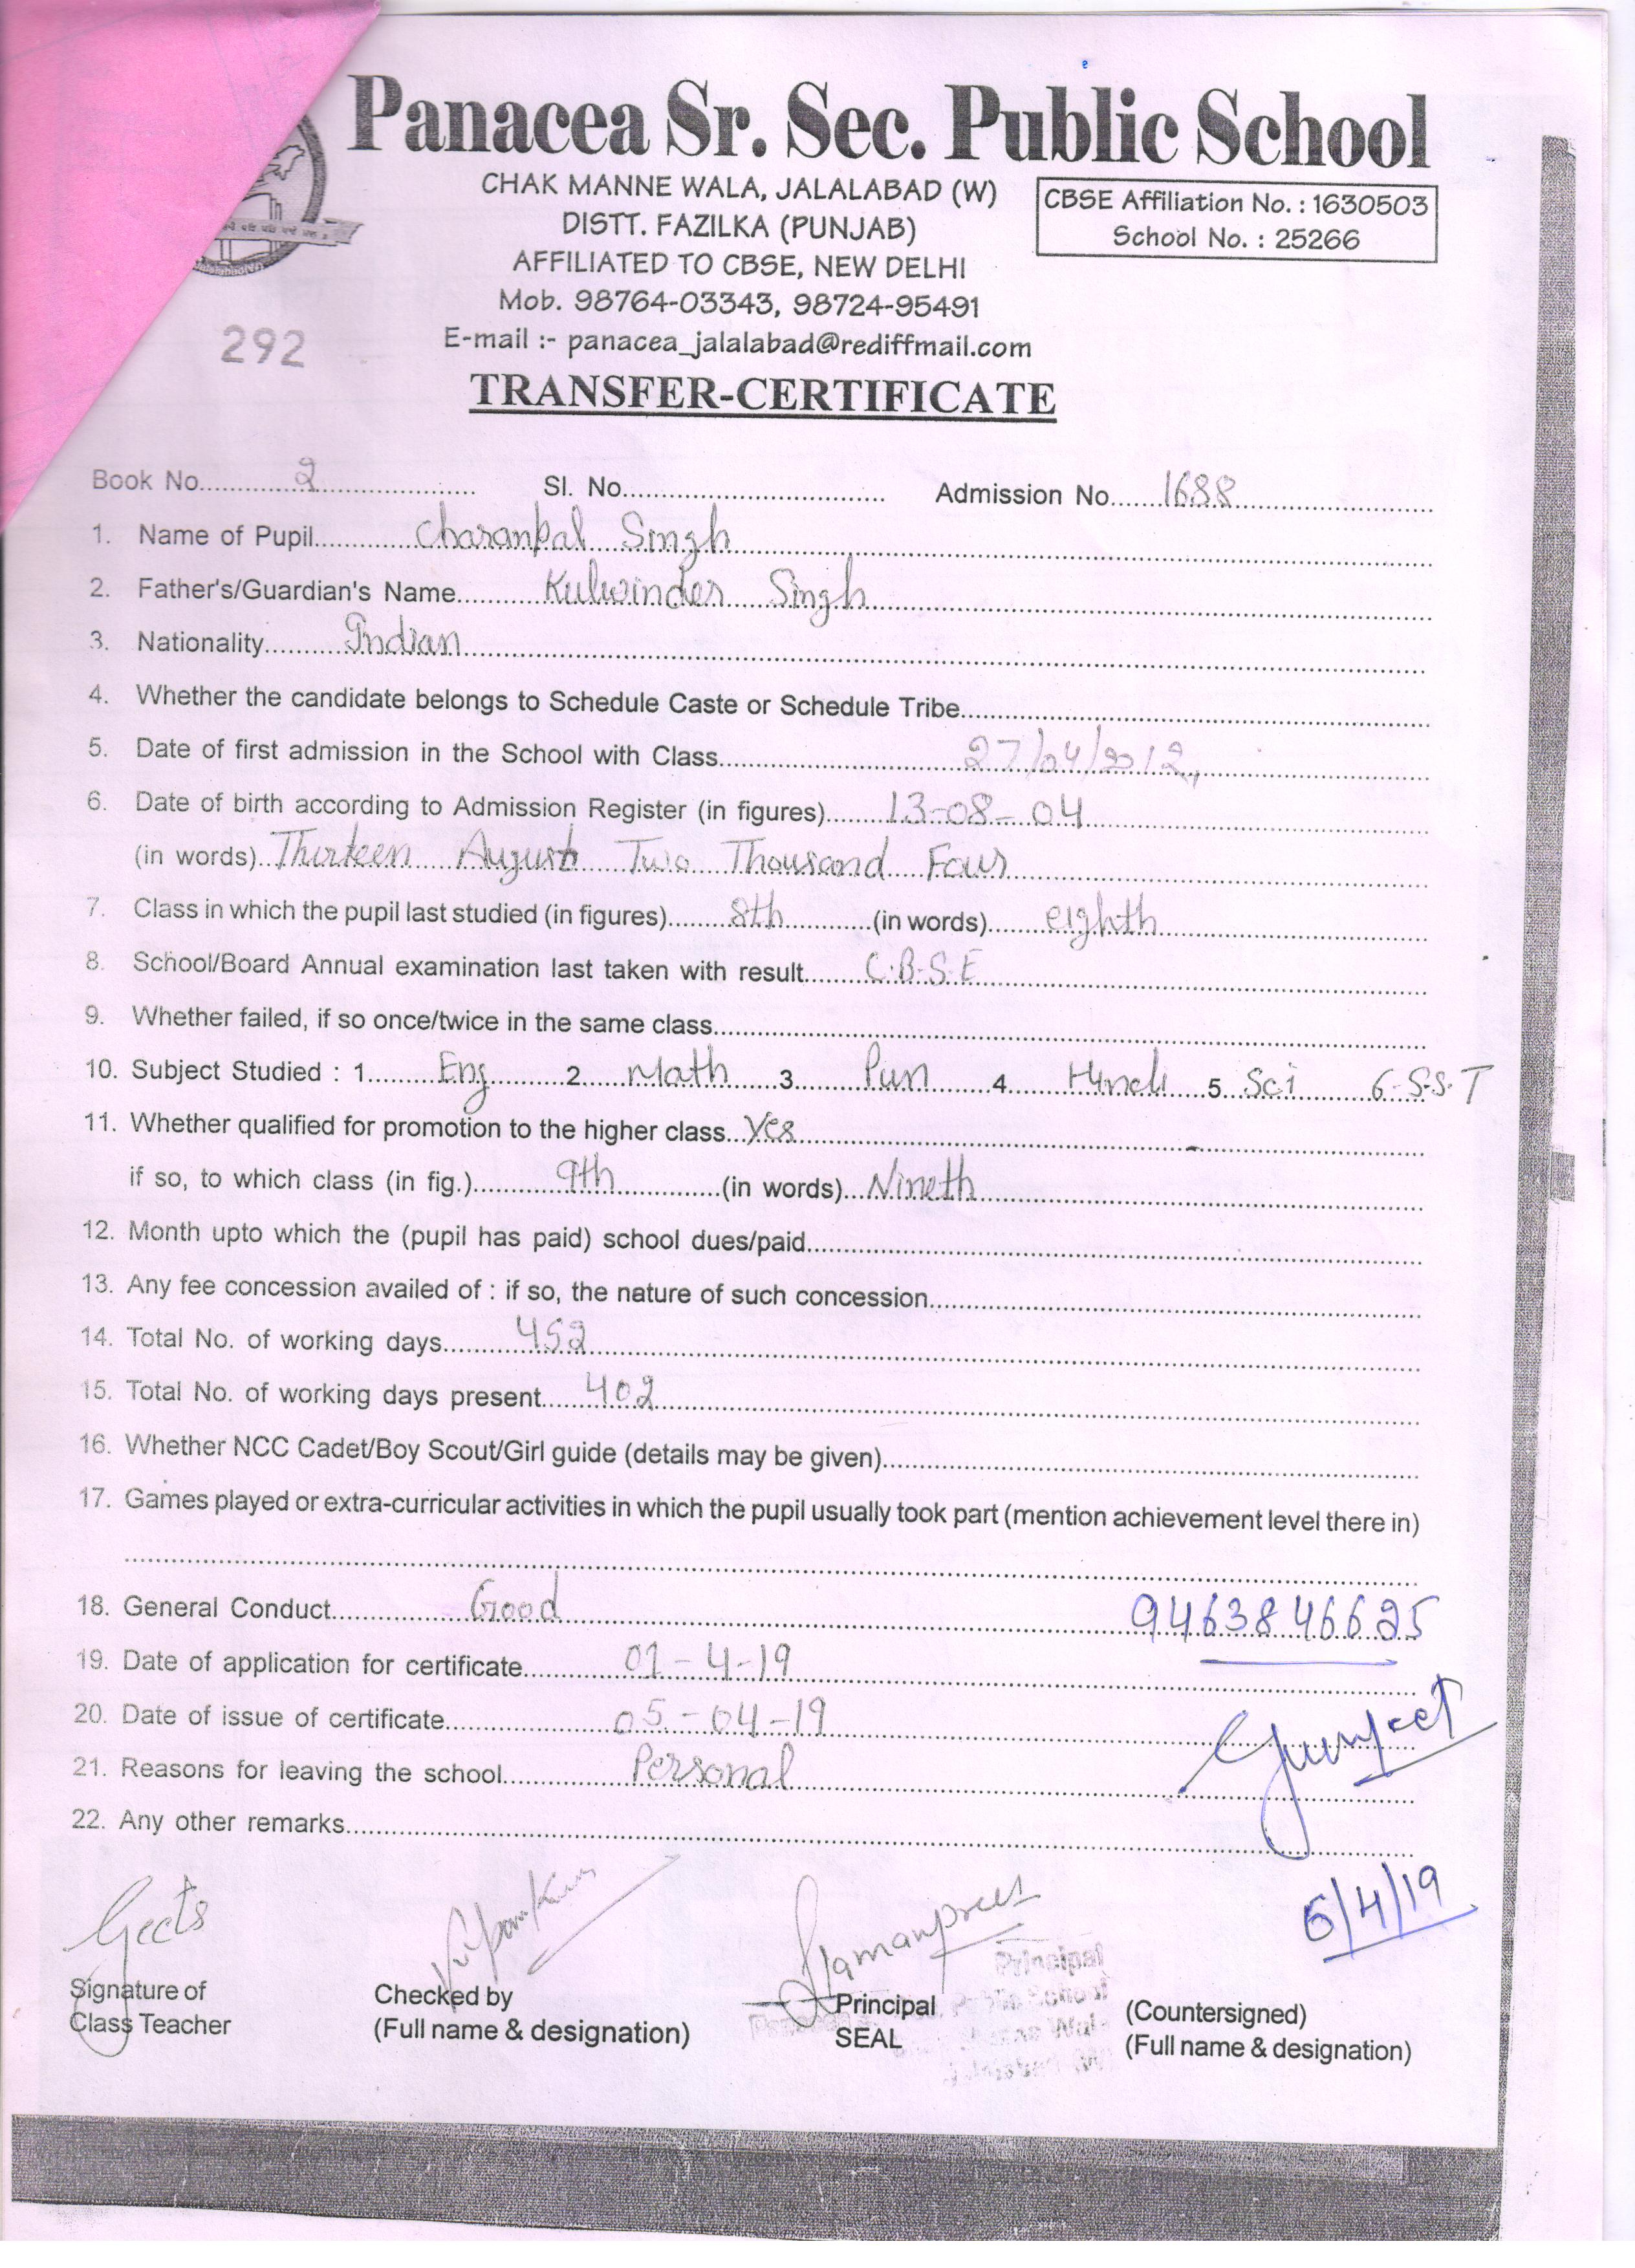 Panacea Sr. Sec. Public School
CHAK MANNE WALA, JALALABAD (W)
DISTT. FAZILKA (PUNJAB)
AFFILIATED TO CBSE, NEW DELHI
Mob. 98764-03343, 98724-95491
E-mail :- panacea_jalalabad@rediffmail.com
CBSE Affiliation No. : 1630503
School No. : 25266
292
TRANSFER-CERTIFICATE
Book No. 2 Sl. No. Admission No. 1688
1. Name of Pupil Charanpal Singh
2. Father's/Guardian's Name Kulwinder Singh
3. Nationality Indian
4. Whether the candidate belongs to Schedule Caste or Schedule Tribe
5. Date of first admission in the School with Class 27/04/2012,
6. Date of birth according to Admission Register (in figures) 13-08-04
(in words) Thirteen August Two Thousand Four
7. Class in which the pupil last studied (in figures) 8th (in words) eighth
8. School/Board Annual examination last taken with result C.B.S.E
9. Whether failed, if so once/twice in the same class
10. Subject Studied : 1 Eng 2 Math 3 Pun 4 Hindi 5 Sci 6-S.S.T
11. Whether qualified for promotion to the higher class Yes
if so, to which class (in fig.) 9th (in words) Nineth
12. Month upto which the (pupil has paid) school dues/paid
13. Any fee concession availed of : if so, the nature of such concession
14. Total No. of working days 452
15. Total No. of working days present 402
16. Whether NCC Cadet/Boy Scout/Girl guide (details may be given)
17. Games played or extra-curricular activities in which the pupil usually took part (mention achievement level there in)
18. General Conduct Good 9463846625
19. Date of application for certificate 01-4-19
20. Date of issue of certificate 05-04-19
21. Reasons for leaving the school Personal
22. Any other remarks
5/4/19
Signature of Class Teacher
Checked by
(Full name & designation)
Principal
SEAL
Principal
(Countersigned)
(Full name & designation)